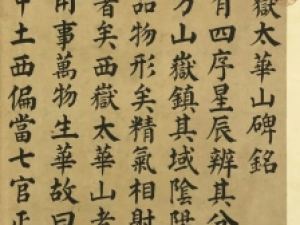 嶽太華山碑銘
有四序星辰辨其分
方山嶽鎮其域陰陽
品物形矣精氣相射
者矣西嶽太華山者
用事萬物生華故曰
中土西偏當七官正